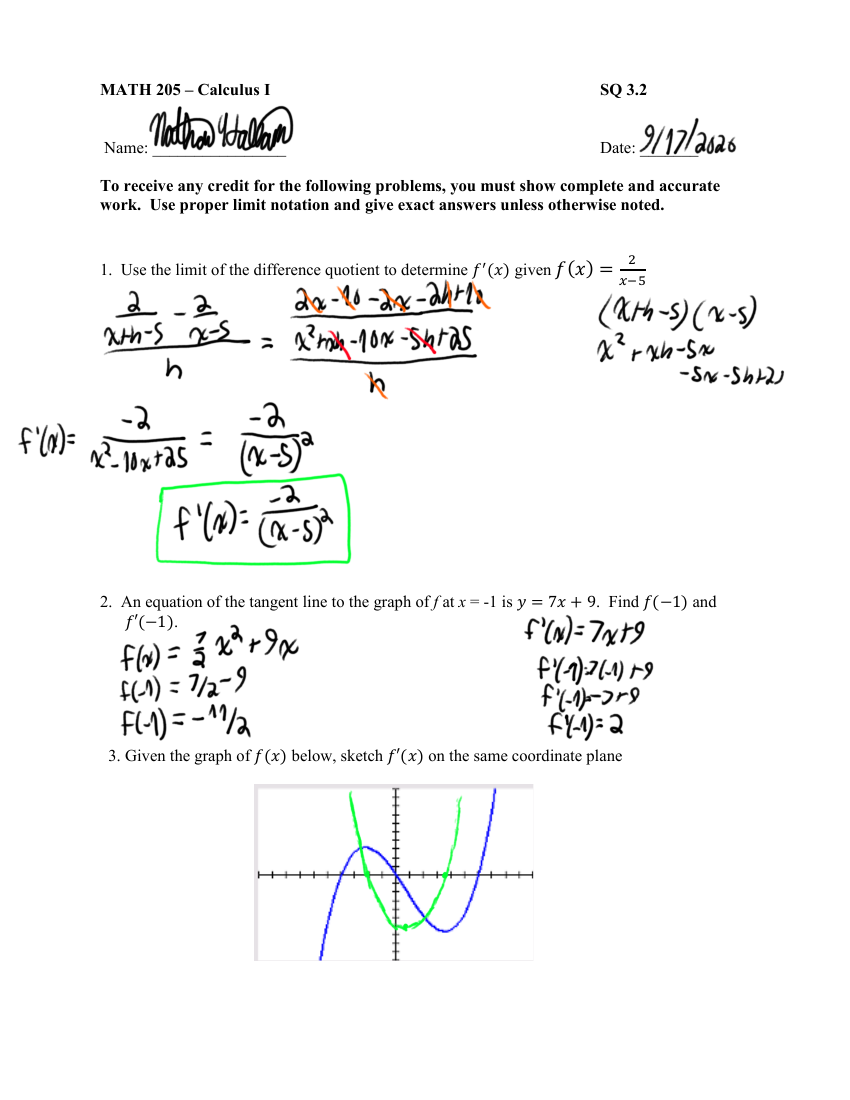 MATH 205 – Calculus I SQ 3.2
Name: Date: 9/17/2020
To receive any credit for the following problems, you must show complete and accurate
work. Use proper limit notation and give exact answers unless otherwise noted.
1. Use the limit of the difference quotient to determine f′(x) given f(x) = 2/(x−5)
(2/(x+h-5) - 2/(x-5))/h = ((2x-10-2x-2h+10)/(x²+xh-10x-5h+25))/h
(x+h-5)(x-5)
x²+xh-5x
-5x-5h+25
f'(x)= -2/(x²-10x+25) = -2/(x-5)²
f'(x)= -2/(x-5)²
2. An equation of the tangent line to the graph of f at x = -1 is y = 7x + 9. Find f(−1) and
f′(−1).
f(x) = 7/2 x² + 9x
f(-1) = 7/2 - 9
f(-1) = -11/2
f'(x)=7x+9
f'(-1)=7(-1)+9
f'(-1)=-7+9
f'(-1)=2
3. Given the graph of f(x) below, sketch f′(x) on the same coordinate plane